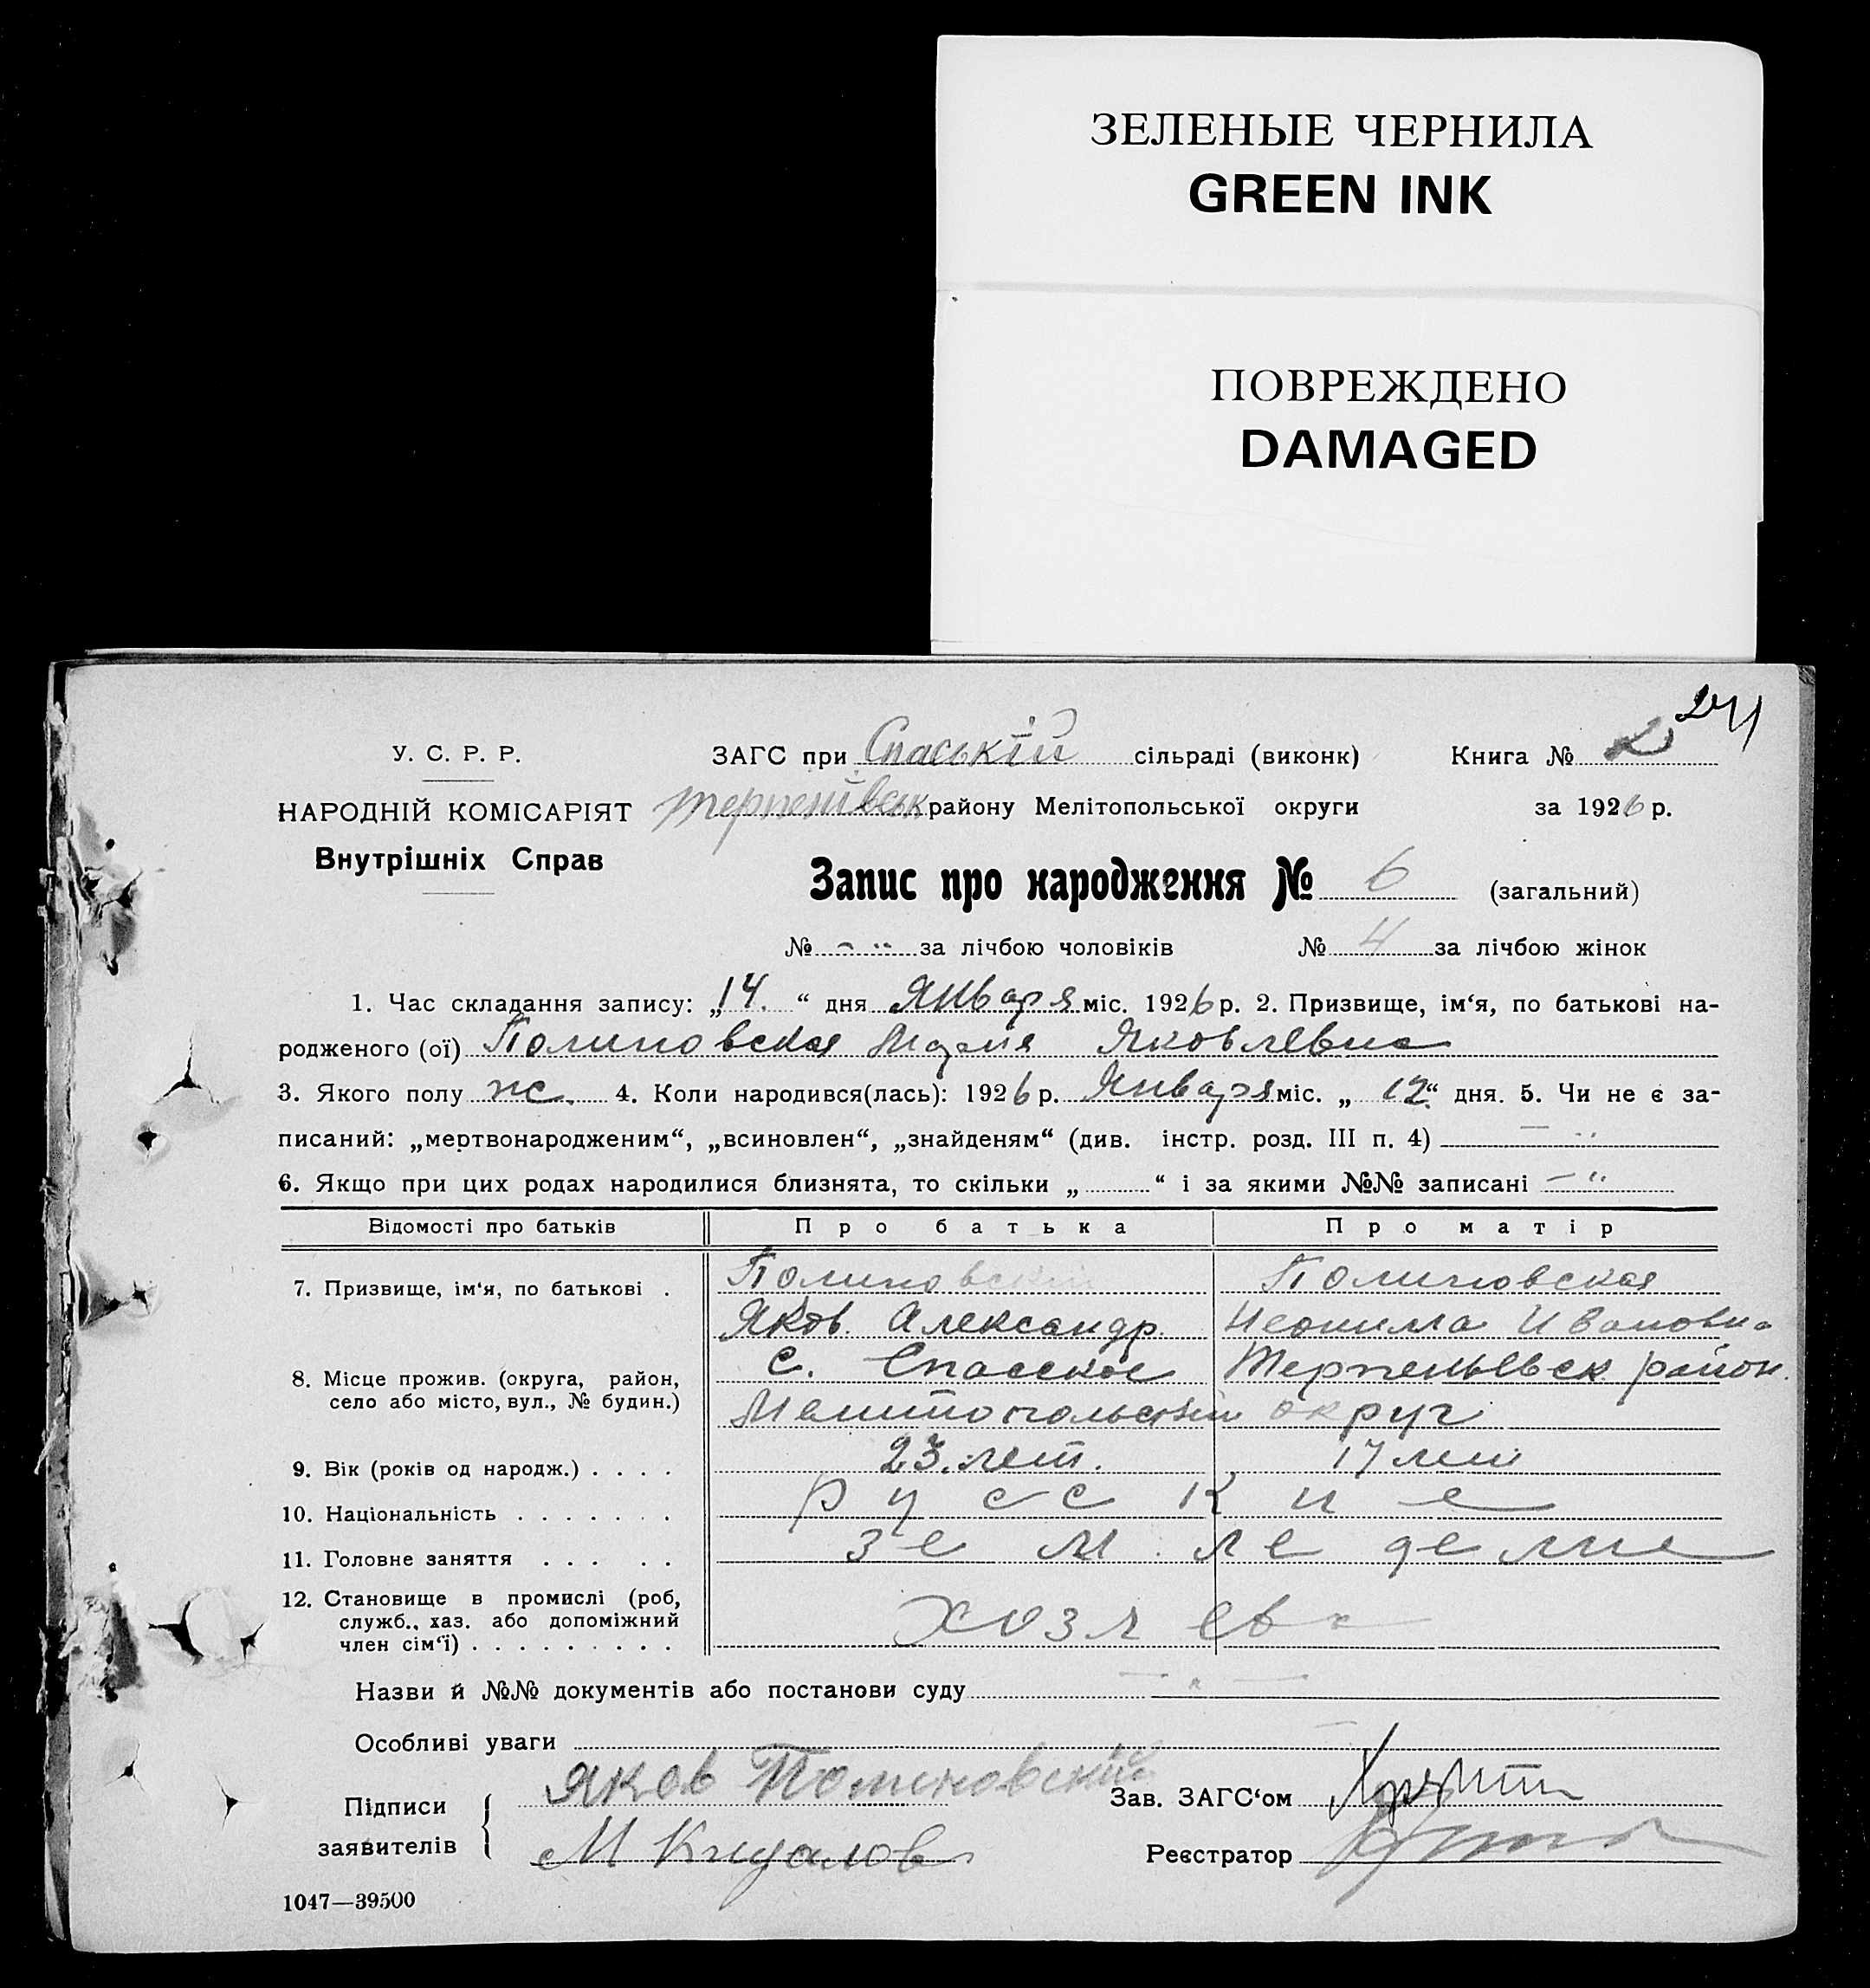 ЗЕЛЕНЫЕ ЧЕРНИЛА
GREEN INK
ПОВРЕЖДЕНО
DAMAGED
241
У. С. Р. Р. ЗАГС при Спаській сільраді (виконк) Книга № 2
НАРОДНІЙ КОМІСАРІЯТ Терпенївськ району Мелітопольської округи за 1926 р.
Внутрішніх Справ
Запис про народження № 6 (загальний)
№ за лічбою чоловіків № 4 за лічбою жінок
1. Час складання запису: „14.“ дня Января міс. 1926 р. 2. Призвище, ім‘я, по батькові на-
родженого (ої) Полиновская Мария Яковлевна
3. Якого полу ж. 4. Коли народився(лась): 1926 р. Января міс. „12“ дня. 5. Чи не є за-
писаний: „мертвонародженим“, „всиновлен“, „знайденям“ (див. інстр. розд. III п. 4)
6. Якщо при цих родах народилися близнята, то скільки „ “ і за якими №№ записані
Відомості про батьків Про батька Про матір
7. Призвище, ім‘я, по батькові . Полиновский Полиновская
Яков. Александр. Неонила Ивановна
8. Місце прожив. (округа, район, с. Спасское Терпеньевск район.
село або місто, вул., № будин.) Мелитопольский округ
9. Вік (років од народж.) . . . . 23. лет. 17 лет
10. Національність . . . . . . . русские
11. Головне заняття . . . . . земледелие
12. Становище в промислі (роб,
служб., хаз. або допоміжний хозяева
член сім‘ї) . . . . . . . . .
Назви й №№ документів або постанови суду
Особливі уваги
Підписи Яков Полиновский Зав. ЗАГС‘ом
заявителів М Кидалов Реєстратор
1047—39500